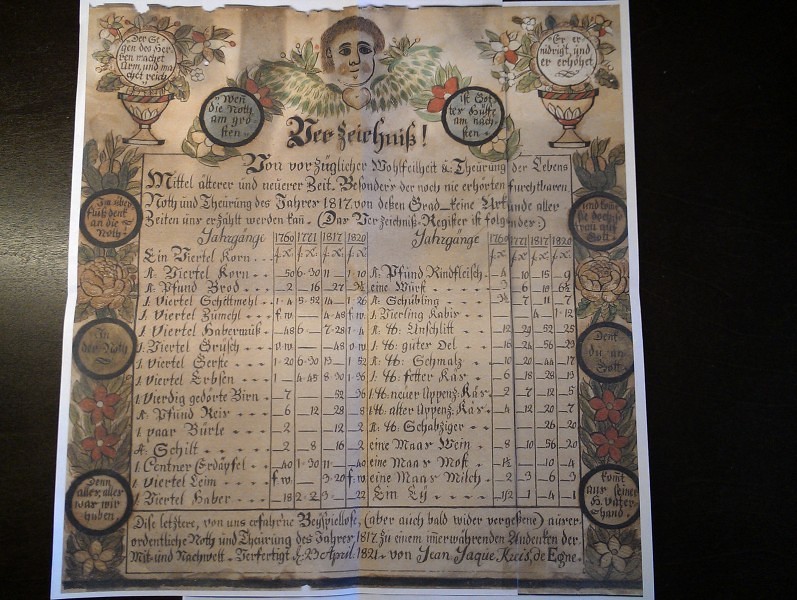 Der Se-
gen des Her-
ren machet
arm, und ma-
chet reich
Er er-
nidrigt, und
er erhöhet
Wen
die Noth
am grö-
sten
ist Got-
tes Hülfe
am näch-
sten
Verzeichniß!
Von vorzüglicher Wohlfeilheit & Theürung der Lebens
Mittel älterer und neüerer Zeit. Besonders der noch nie erhörten furchtbaren
Noth und Theürung des Jahres 1817. von deßen Grad keine Urkunde aller
Zeiten uns erzählt werden kañ. (Das Verzeichniß-Register ist folgender:)
Im über-
fluß denk
an die
Noth
In
der Noth
Denk
du an
Gott
Denn
alles, alles
was wir
haben
komt
aus seiner
H. Vater-
hand.
Jahrgänge 1760 1771 1817 1820
Ein Viertel Korn
1. Viertel Korn 50 6-30 11 1-10
1. Pfund Brod 2 16 27
1 Viertel Schittmehl 1-4 5-52 14 1-26
1. Viertel Zümehl f.w. 4-48 f.w.
1 Viertel Habermüß 48 6 7-28 1-4
1. Viertel Grüsch v.w. 48 v.w.
1 Viertel Gerste 1-20 6-30 13 1-52
1 Viertel Erbsen 1 4-45 8-30 1-36
1 Vierdig gedörte Birn 7 52 36
1. Pfund Reis 6 12 28 8
1 paar Bürle 2 12 2
1. Schilt 2 8 16 2
1 Centner Erdäpfel 40 1-30 11 40
1 Viertel Leim f.w. 3-20 f.w.
1 Viertel Haber 18 2-2 3 22
Jahrgänge 1760 1771 1817 1820
1. Pfund Rindfleisch 4 10 15 9
eine Würst 3 6 18 6½
1. Schübling 3½ 7 11 7
1. Vierling Kabis 4 1-12
1. ℔. Unschlitt 12 20 52 25
1. ℔. gutes Oel 16 24 56 23
1. ℔. Schmalz 10 20 44 17
1. ℔. fetter Käs 6 18 28 13
1 ℔. neuer Appenz. Käs 2 7 12 5
1 ℔. alter Appenz. Käs 4 12 20 7
1. ℔. Schabziger 26 20
eine Maas Wein 8 10 56 20
eine Maas Most 1½ 10 4
eine Maas Milch 2 3 6 3
Ein Ey 1/2 1 4 1
Dise letztere, von uns erfahrne Beyspiellose, (aber auch bald wider vergeßene) ausser-
ordentliche Noth und Theürung des Jahres 1817. zu einem imerwährenden Andenken der
Mit- und Nachwelt. Verfertigt 23 April. 1821. von Jean Jaque